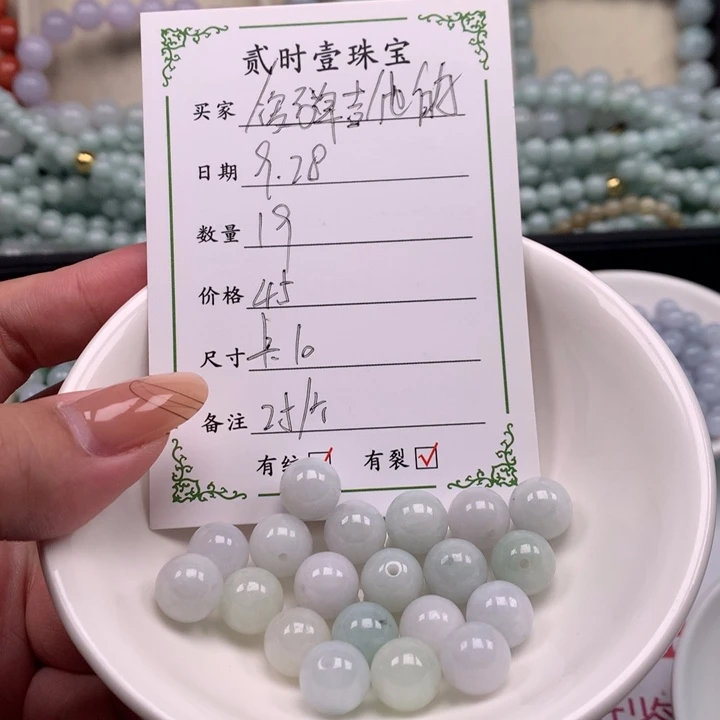 贰时壹珠宝
买家 会弹吉他的
日期 9.28
数量 19
价格 45
尺寸 卡10
备注
有纹 有裂